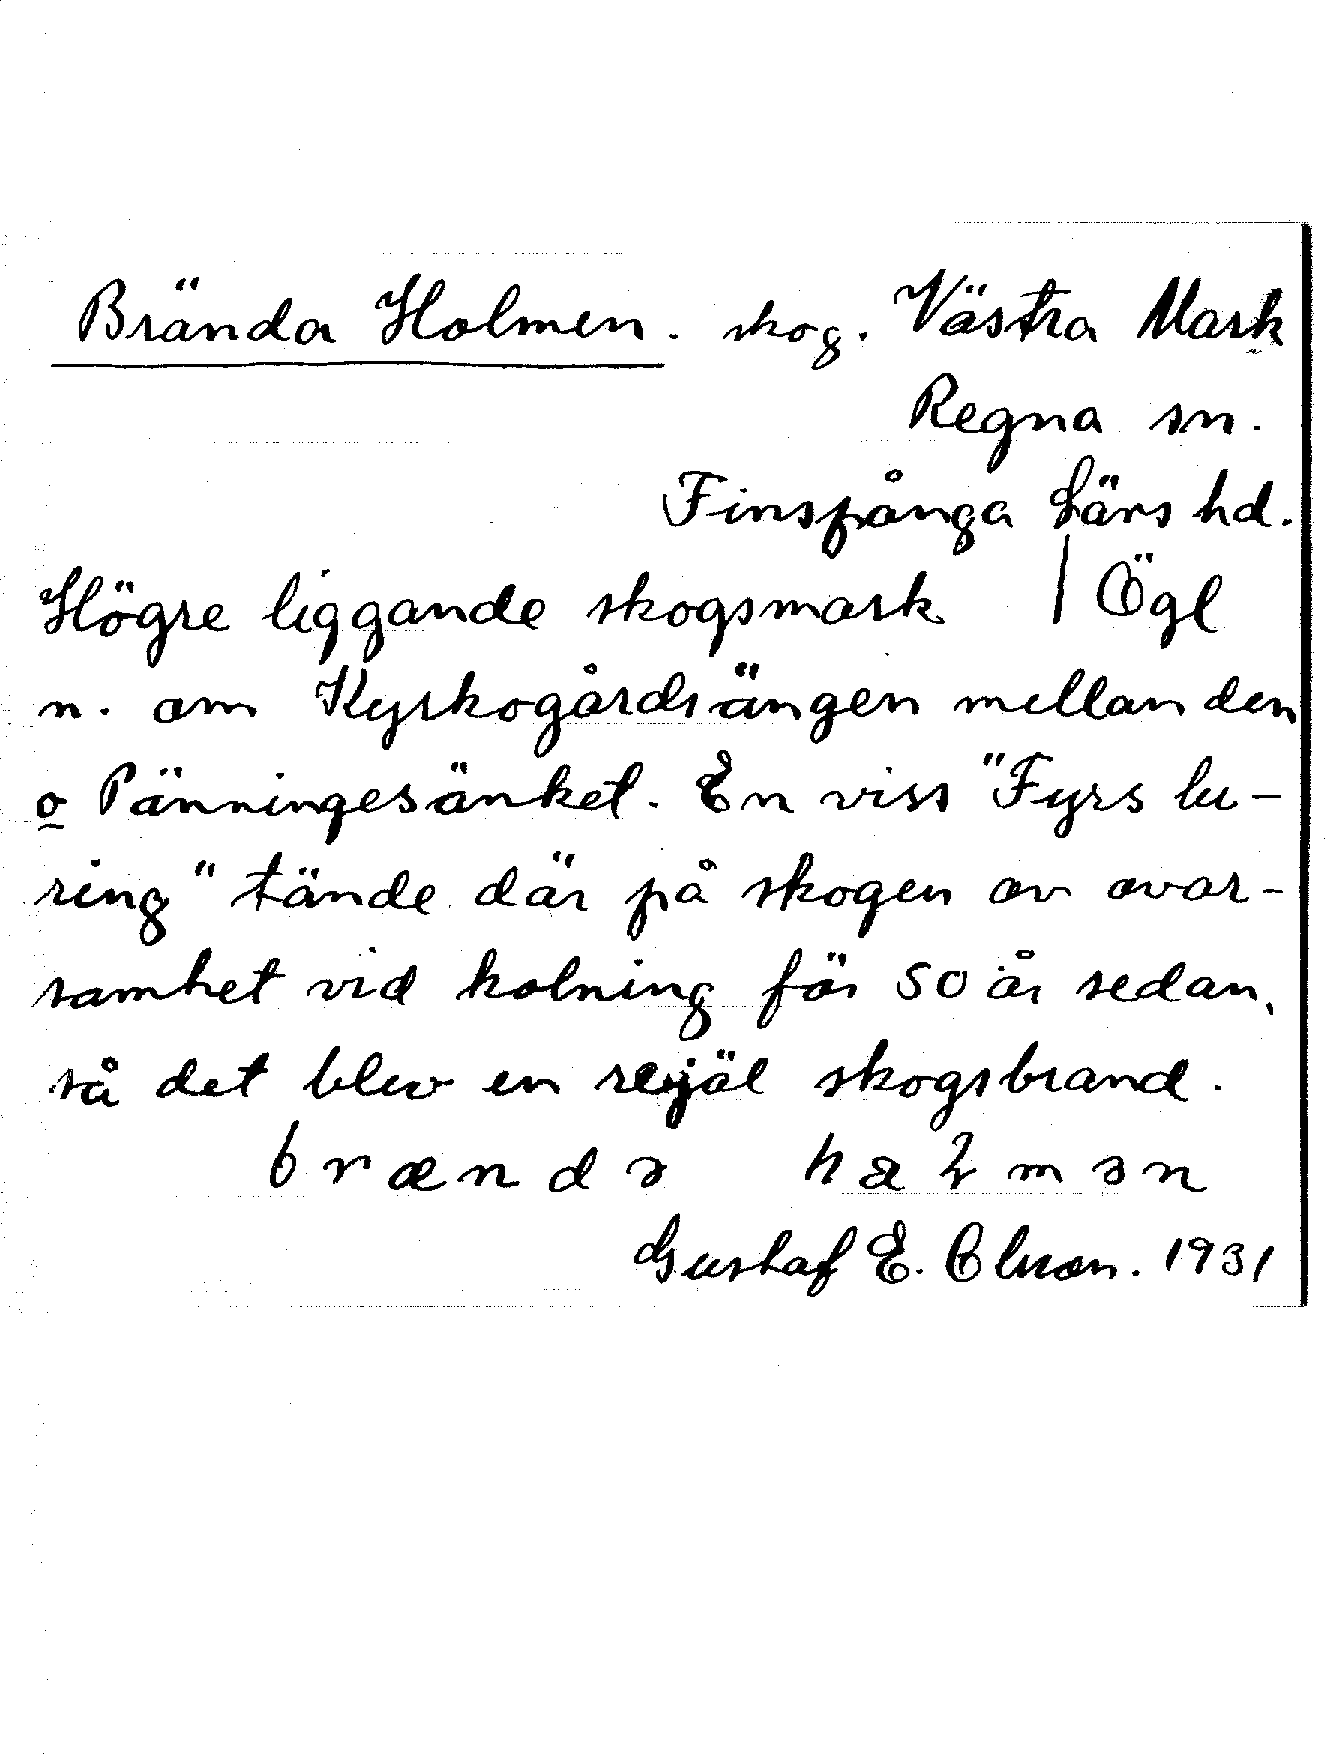 Brända Holmen. skog. Västra Mark
Regna sn.
Finspånga Läns hd.
Högre liggande skogsmark | Ögl
n. om Kyrkogårdsängen mellan den
o Pänningesänket. En viss "Fyrs lu-
ring" tände där på skogen av ovar-
samhet vid kolning för 50 år sedan,
så det blev en rejäl skogsbrand.
brændə
Gustaf E. Olsson. 1931